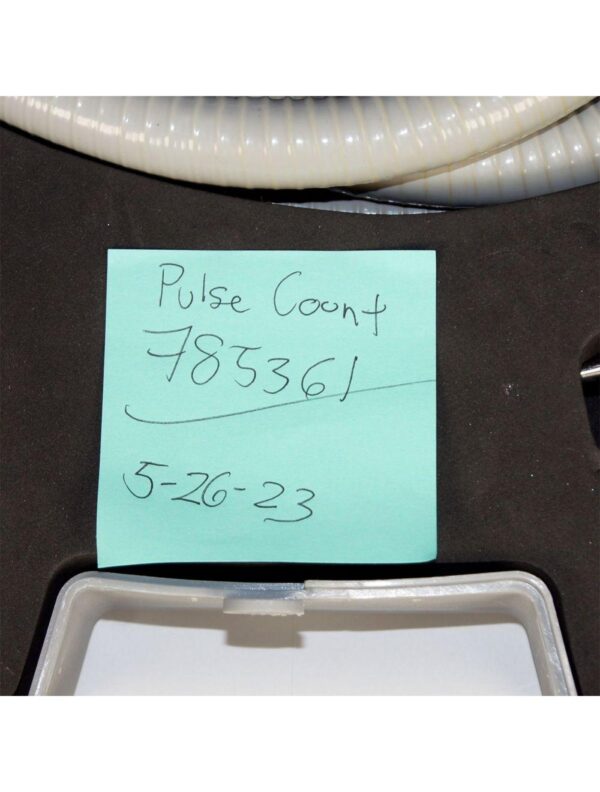 Pulse Count
785361
5-26-23